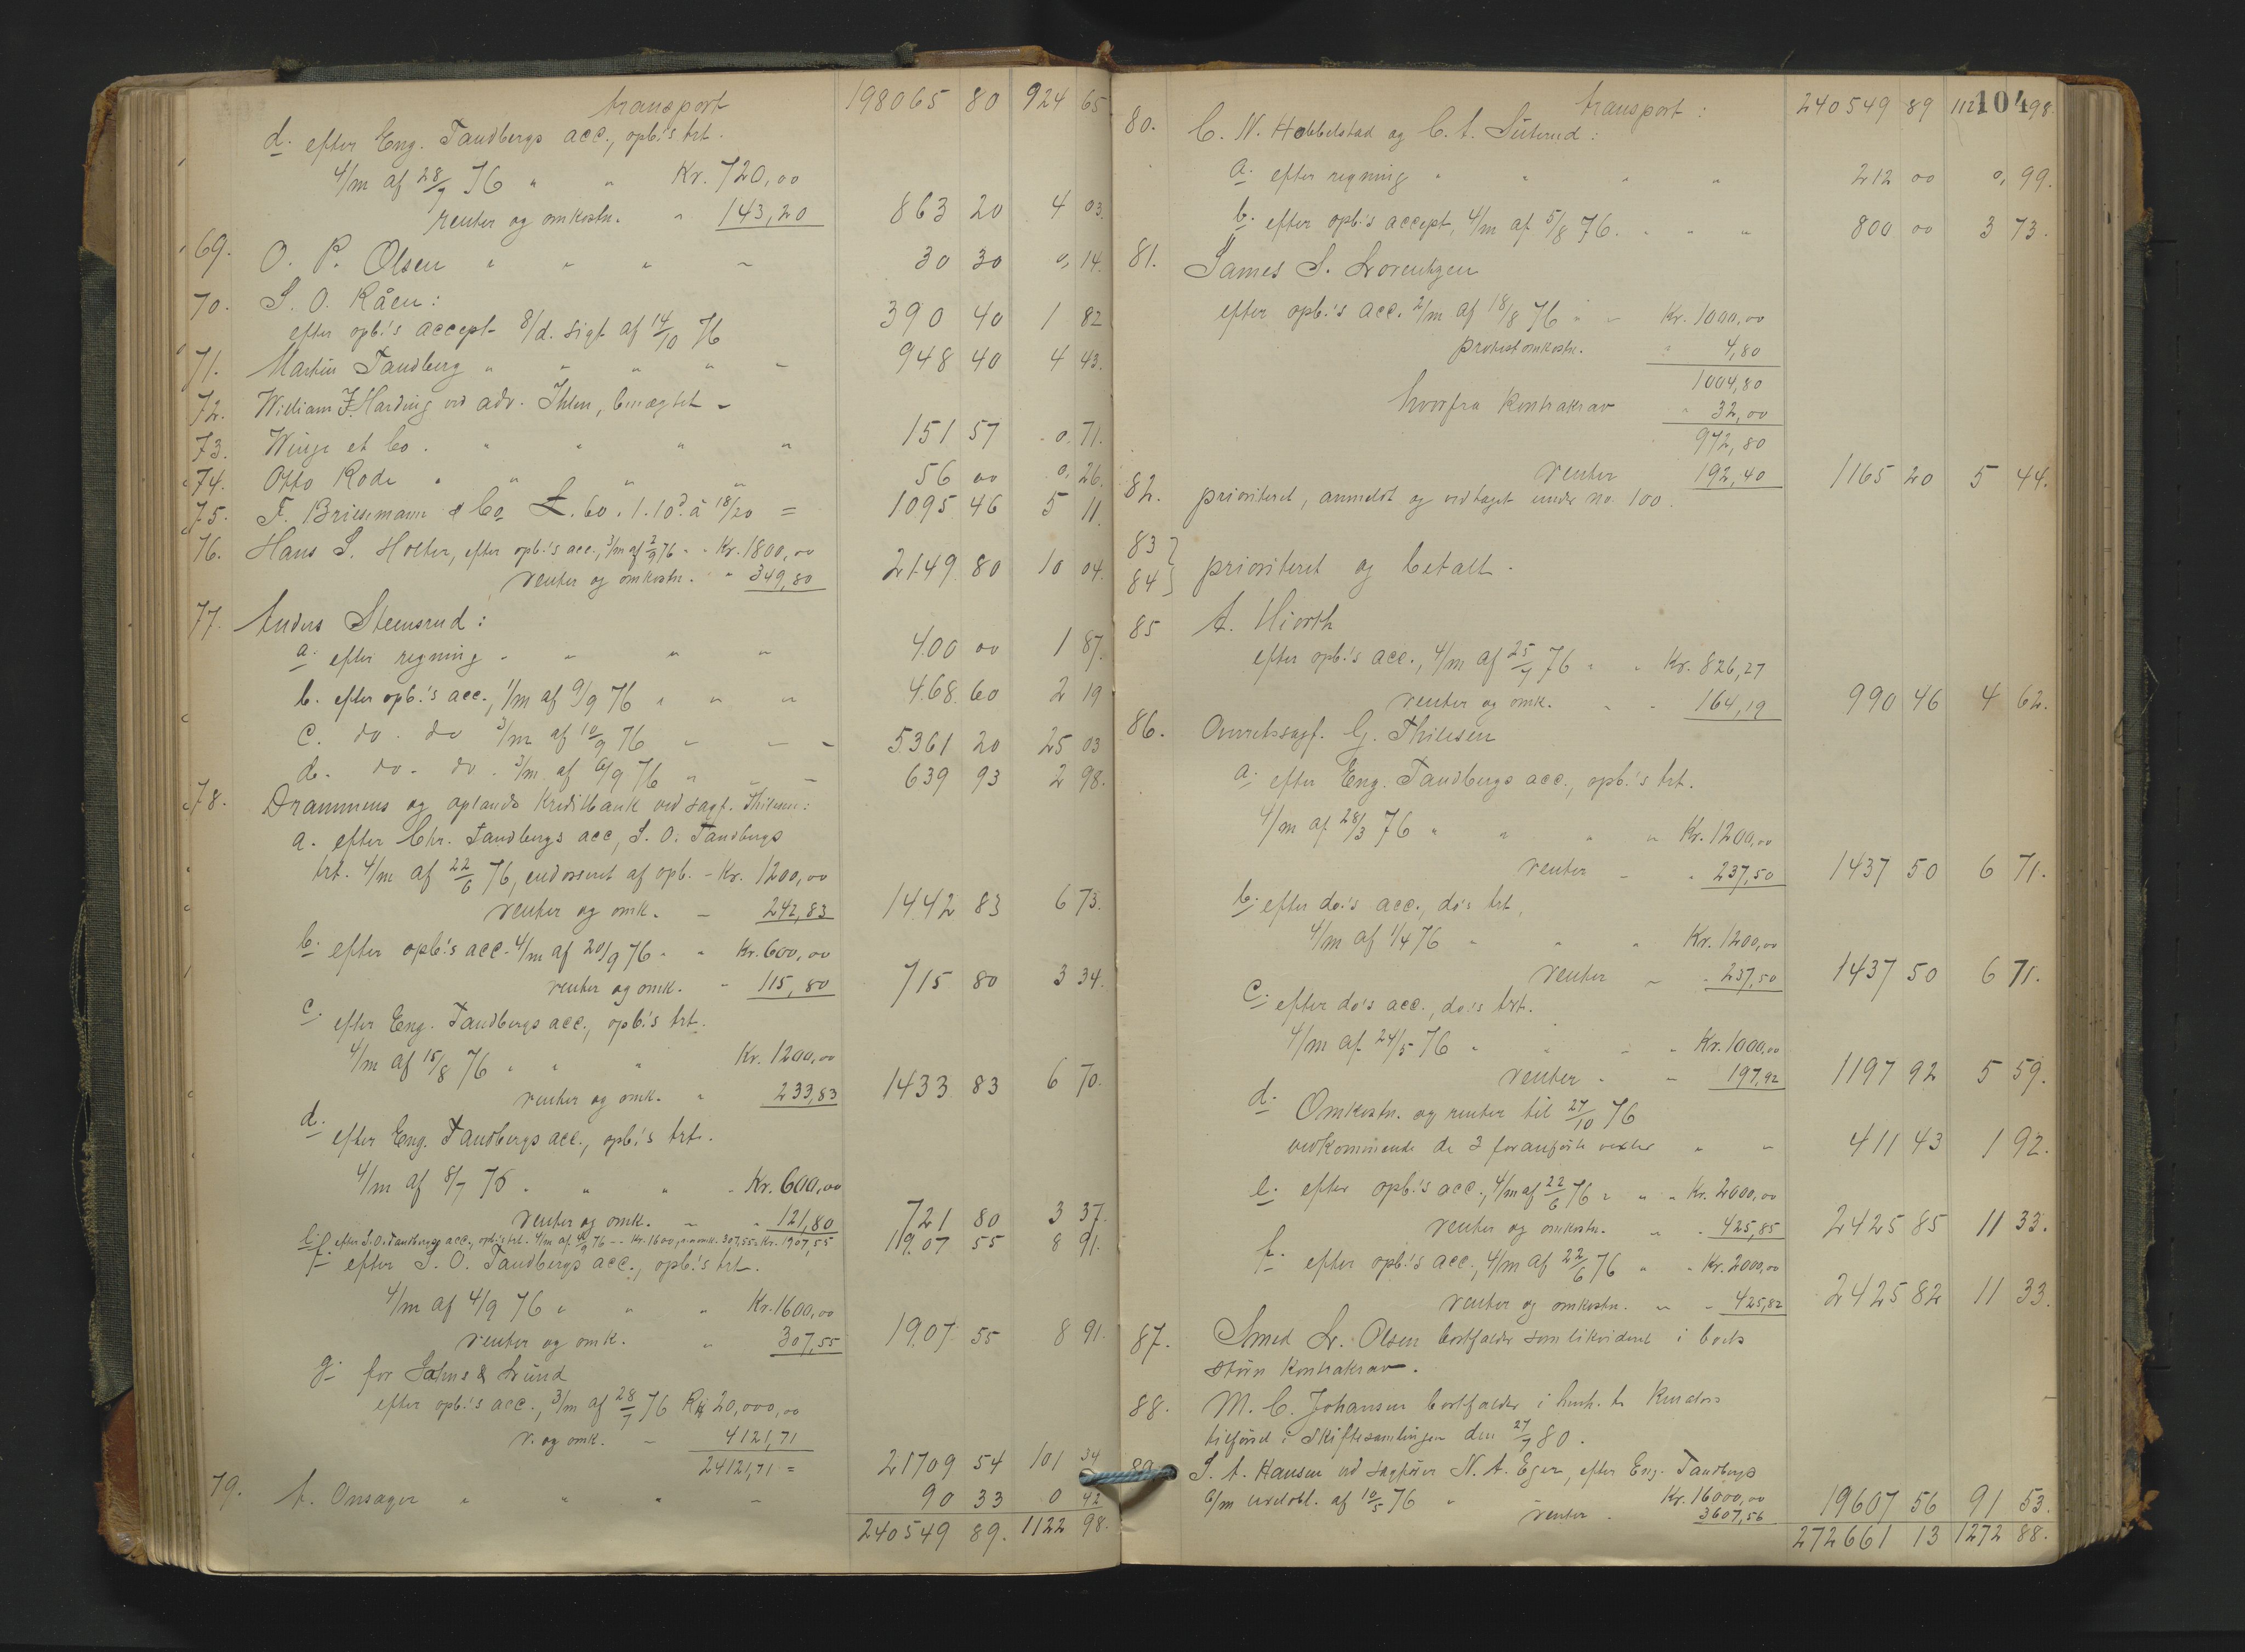 transport 198065 80 924 65
d. efter Eng. Tandbergs acc., opb.'s trt.
4/m af 28/7 76 " " Kr. 720,00
renter og omkostn. " 143,20 863 20 4 03.
69. O. P. Olsen " " " " 30 30 0, 14.
70. S. O. Råen:
efter opb.'s accept 8/d. sigt af 14/10 76 390 40 1 82
71. Martin Tandberg " " " " 948 40 4 43.
72. William F. Harding ved adv. Ihlen, benægtet -
73. Winge et Co. " " " " 151 57 0, 71.
74. Otto Rode " " " " 56 00 0, 26.
75. F. Briesemann & Co £. 60. 1. 10d. à 18/20 = 1095 46 5 11.
76. Hans S. Holter, efter opb.'s acc., 3/m af 2/9 76 " " Kr. 1800,00
renter og omkostn. " 349,80 2149 80 10 04.
77. Anders Steensrud:
a. efter regning " " " " 400 00 1 87.
b. efter opb.'s acc., 1/m af 9/9 76 " " " 468 60 2 19
c. do. do 3/m af 10/9 76 " " " 5361 20 25 03
d. do. do. 3/m af 6/9 76 " " " 639 93 2 98.
78. Drammens og oplands Kreditbank ved sagf. Thilesen:
a. efter Chr. Tandbergs acc, S. O. Tandbergs
trt. 4/m af 22/6 76, endosseret af opb. - Kr. 1200,00
renter og omk. - 242,83 1442 83 6 73.
b. efter opb.'s acc. 4/m af 20/9 76 " " Kr. 600,00
renter og omk. " 115,80 715 80 3 34.
c. efter Eng. Tandbergs acc., opb.'s trt.
4/m af 15/8 76 " " " Kr. 1200,00
renter og omk. " 233,83 1433 83 6 70.
d. efter Eng. Tandbergs acc., opb.'s trt.
4/m af 8/7 76 " " " " Kr. 600,00
renter og omk. " " 121,80 721 80 3 37.
e. efter S. O. Tandbergs acc., opb.'s trt. 4/m af 4/9 76 -- Kr. 1600, r. og omk. 307,55 = Kr. 1907,55 1907 55 8 91.
f. efter S. O. Tandbergs acc., opb.'s trt.
4/m af 4/9 76 " " " Kr. 1600,00
renter og omk. " 307,55 1907 55 8 91.
g. for Salms & Lund
efter opb.'s acc., 3/m af 28/7 76 20,000,00
r. og omk. - 4121,71
24121,71 = 21709 54 101 34
79. A. Onsager " " " " 90 33 0 42
240549 89. 1122 98.
104
transport: 240549 89 112 98.
80. C. N. Hobbelstad og C. A. Suterud:
a. efter regning " " " " 212 00 0, 99.
b. efter opb.'s accept, 4/m af 5/8 76. " " " 800 00 3 73.
81. James S. Lorentzen
efter opb.'s acc. 2/m af 18/8 76 " " Kr. 1000,00
protestomkostn. " 4,80
1004,80
hvorfra Kontrakrav " 32,00
972,80
renter 192,40 1165 20 5 44.
82. prioriteret, anmeldt og vedtaget under no. 100.
83
84 prioriteret og betalt.
85 A. Hiorth
efter opb.'s acc., 4/m af 25/7 76 " " Kr. 826,27
renter og omk. " " 164,19 990 46 4 62.
86. Overretssagf. G. Thilesen
a. efter Eng. Tandbergs acc., opb.'s trt.
4/m af 28/3 76 " " " " Kr. 1200,00
renter " " 237,50 1437 50 6 71.
b. efter do.'s acc., do's trt,
4/m af 1/4 76 " " " Kr. 1200,00
renter " " 237,50 1437 50 6 71.
c. efter do's acc., do.'s trt.
4/m af 24/5 76 " " " " Kr. 1000,00
renter " " 197,92 1197 92 5 59.
d. Omkostn. og renter til 27/10 76
vedkommende de 3 foranførte vexler " " 411 43 1 92.
e. efter opb.'s acc., 4/m af 22/6 76 " " " Kr. 2000,00
renter og omkostn. " " 425,85 2425 85 11 33.
f. efter opb.'s acc., 4/m af 22/6 76 " " Kr. 2000,00
renter og omkostn. " " 425,82 2425 82 11 33.
87. Smed Lr. Olsen bortfalder som likvideret i boets
større Kontrakrav.
88. M. C. Johansen bortfalder i henh. til Kurators
tilførsel i Skiftesamlingen den 27/7 80.
89. S. A. Hansen ved sagfører N. A. Eger, efter Eng. Tandbergs
6/m vexelobl. af 10/5 76 " Kr. 16000,00
renter. 3607,56 19607 56 91 53.
272661 13 1272 88.